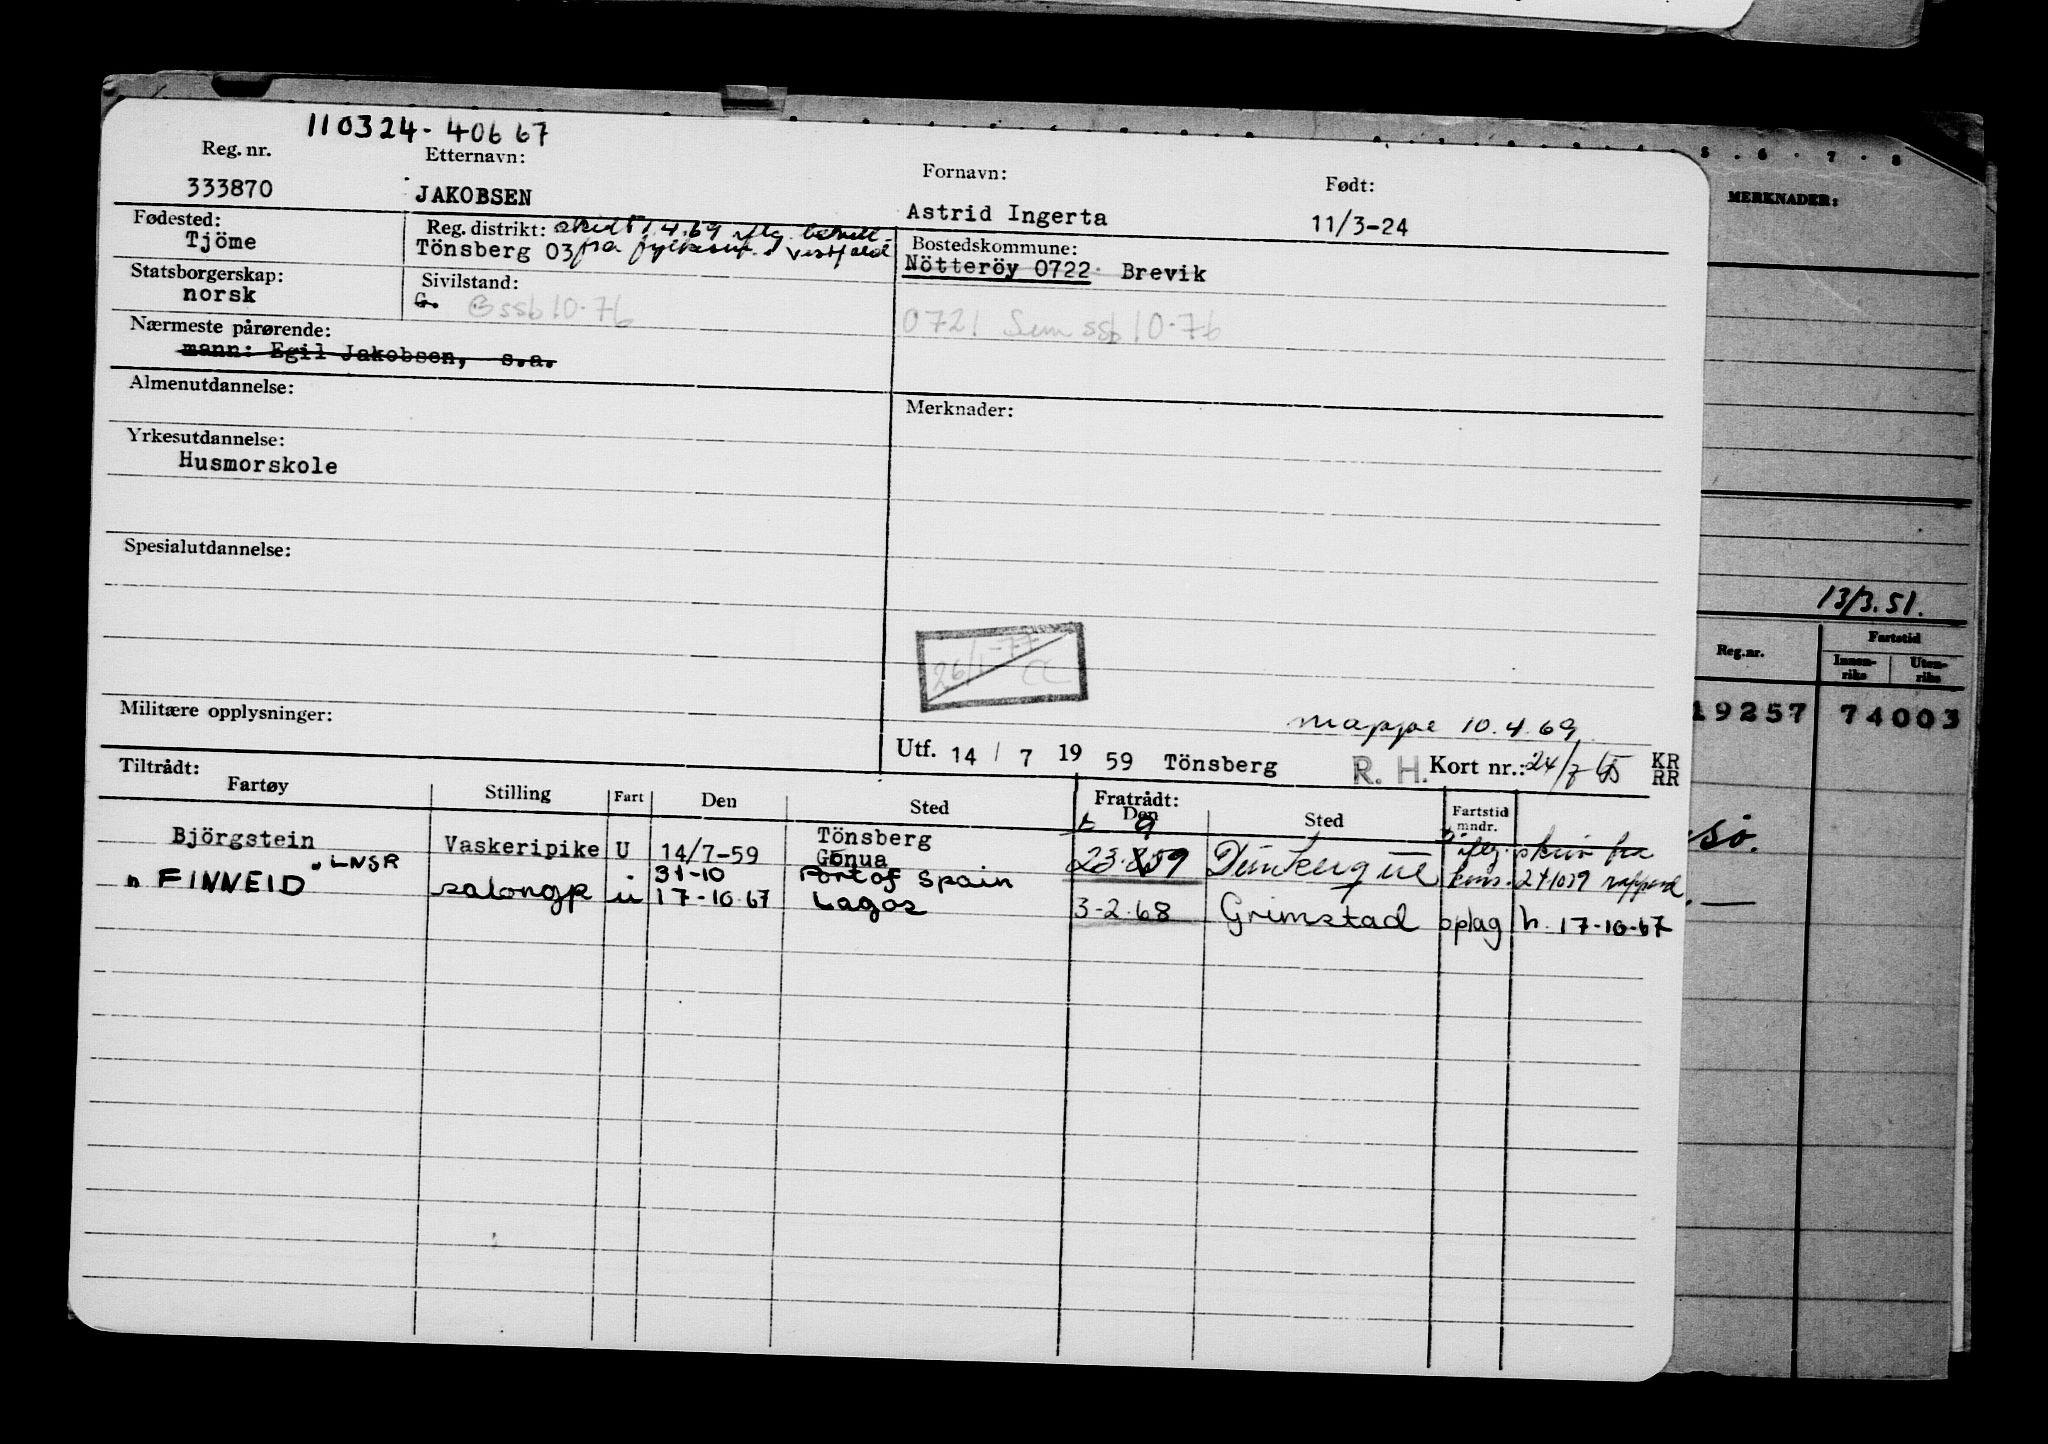 110324-40667
Reg. nr. Etternavn: Fornavn: Født:
333870 JAKOBSEN Astrid Ingerta 11/3-24
Fødested: Reg. distrikt: skilt 1.4.69 iflg.
Tjöme Tönsberg 03 fra i Vestfold
Bostedskommune:
Nötteröy 0722 Brevik
Statsborgerskap: Sivilstand:
norsk G. ssb 10.76
0721 Sem ssb 10.76
Nærmeste pårørende:
mann: Egil Jakobsen, s.a.
Almenutdannelse: Merknader:
Yrkesutdannelse:
Husmorskole
Spesialutdannelse:
26/1-77
Militære opplysninger:
mappe 10.4.69
Utf. 14 / 7 19 59 Tönsberg R. H. Kort nr.: 24/7 KR RR
Tiltrådt: Fratrådt:
Fartøy Stilling Fart Den Sted Den Sted Fartstid mndr.
Björgstein Vaskeripike U 14/7-59 Tönsberg
Genua
LNSR 31-10 Port of Spain
FINNEID salongp u 17-10-67 Lagos 3-2.68 Grimstad oplag h. 17-10-67
MERKNADER:
5 6 7 8
13/3.51.
Reg.nr. Fartstid
Innen-riks Uten-riks
19257 74003
sø.